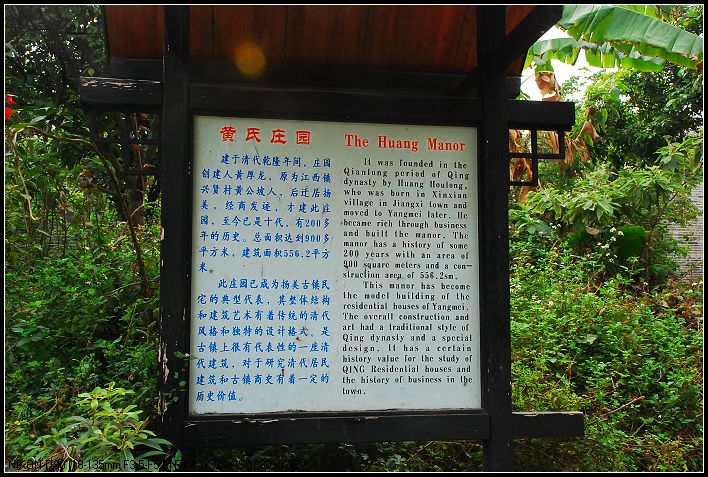 黄氏庄园
建于清代乾隆年间，庄园
创建人黄厚龙，原为江西镇
兴贤村黄公坡人，后迁居扬
美，经商发迹，才建此庄
园，至今已是十代，有200多
年的历史。总面积达到900多
平方米，建筑面积556.2平方
米。
此庄园已成为扬美古镇民
宅的典型代表，其整体结构
和建筑艺术有着传统的清代
风格和独特的设计格式，是
古镇上很有代表性的一座清
代建筑，对于研究清代居民
建筑和古镇商史有着一定的
历史价值。
The Huang Manor
It was founded in the
Qianlong period of Qing
dynasty by Huang Houlong,
who was born in Xinxian
village in Jiangxi town and
moved to Yangmei later. He
became rich through business
and built the manor. The
manor has a history of some
200 years with an area of
900 square meters and a con-
struction area of 556.2sm.
This manor has become
the model building of the
residential houses of Yangmei.
The overall construction and
art had a traditional style of
Qing dynasty and a special
design. It has a certain
history value for the study of
QING Residential houses and
the history of business in the
town.